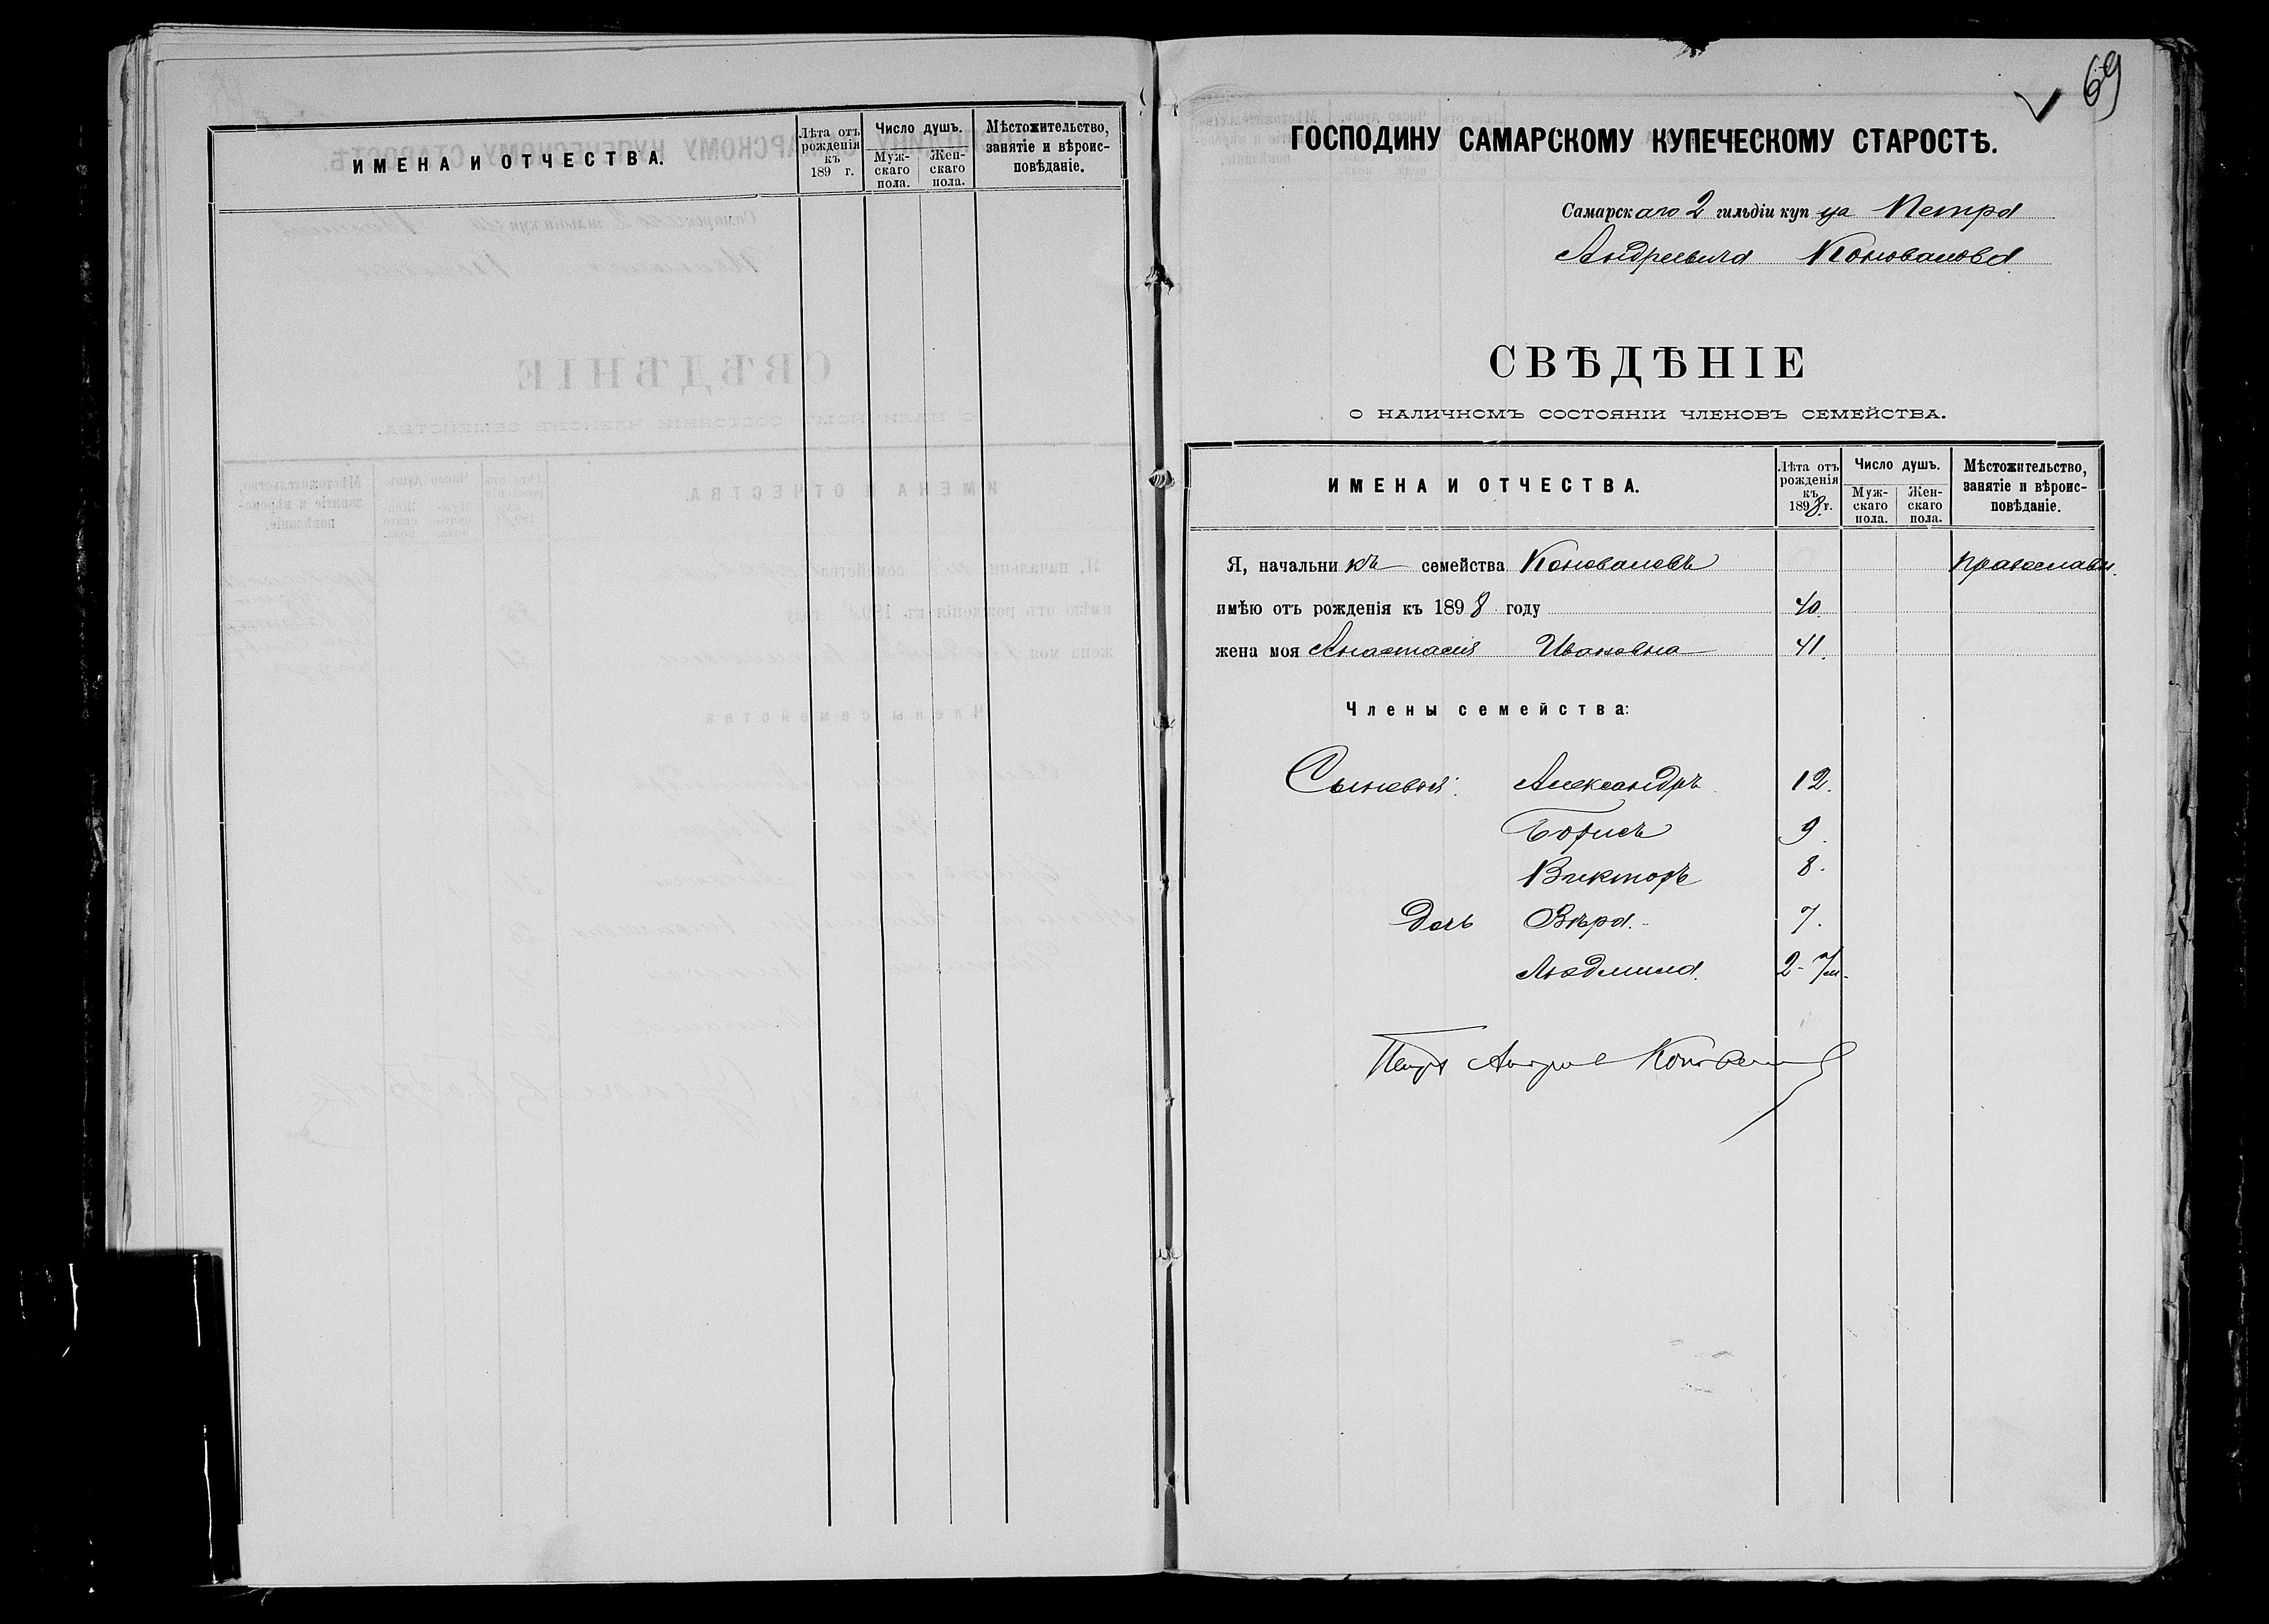 ИМЕНА И ОТЧЕСТВА.
Лѣта отъ рожденія къ 189 г.
Число душъ.
Муж-скаго пола.
Жен-скаго пола.
Мѣстожительство, занятіе и вѣроис-повѣданіе.
69
ГОСПОДИНУ САМАРСКОМУ КУПЕЧЕСКОМУ СТАРОСТѢ.
Самарскаго 2 гильдіи купца Петра
Андреевича Коновалова
СВѢДѢНІЕ
О НАЛИЧНОМЪ СОСТОЯНІИ ЧЛЕНОВЪ СЕМЕЙСТВА.
ИМЕНА И ОТЧЕСТВА.
Лѣта отъ рожденія къ 1898 г.
Число душъ.
Муж-скаго пола.
Жен-скаго пола.
Мѣстожительство, занятіе и вѣроис-повѣданіе.
Я, начальникъ семейства Коноваловъ православн.
имѣю отъ рожденія къ 1898 году 40.
жена моя Анастасія Ивановна 41.
Члены семейства:
Сыновья: Александръ 12.
Борисъ 9.
Викторъ 8.
Дочь Вѣра. 7.
Людмила. 2-7м.
Петръ Андреев Коновалов